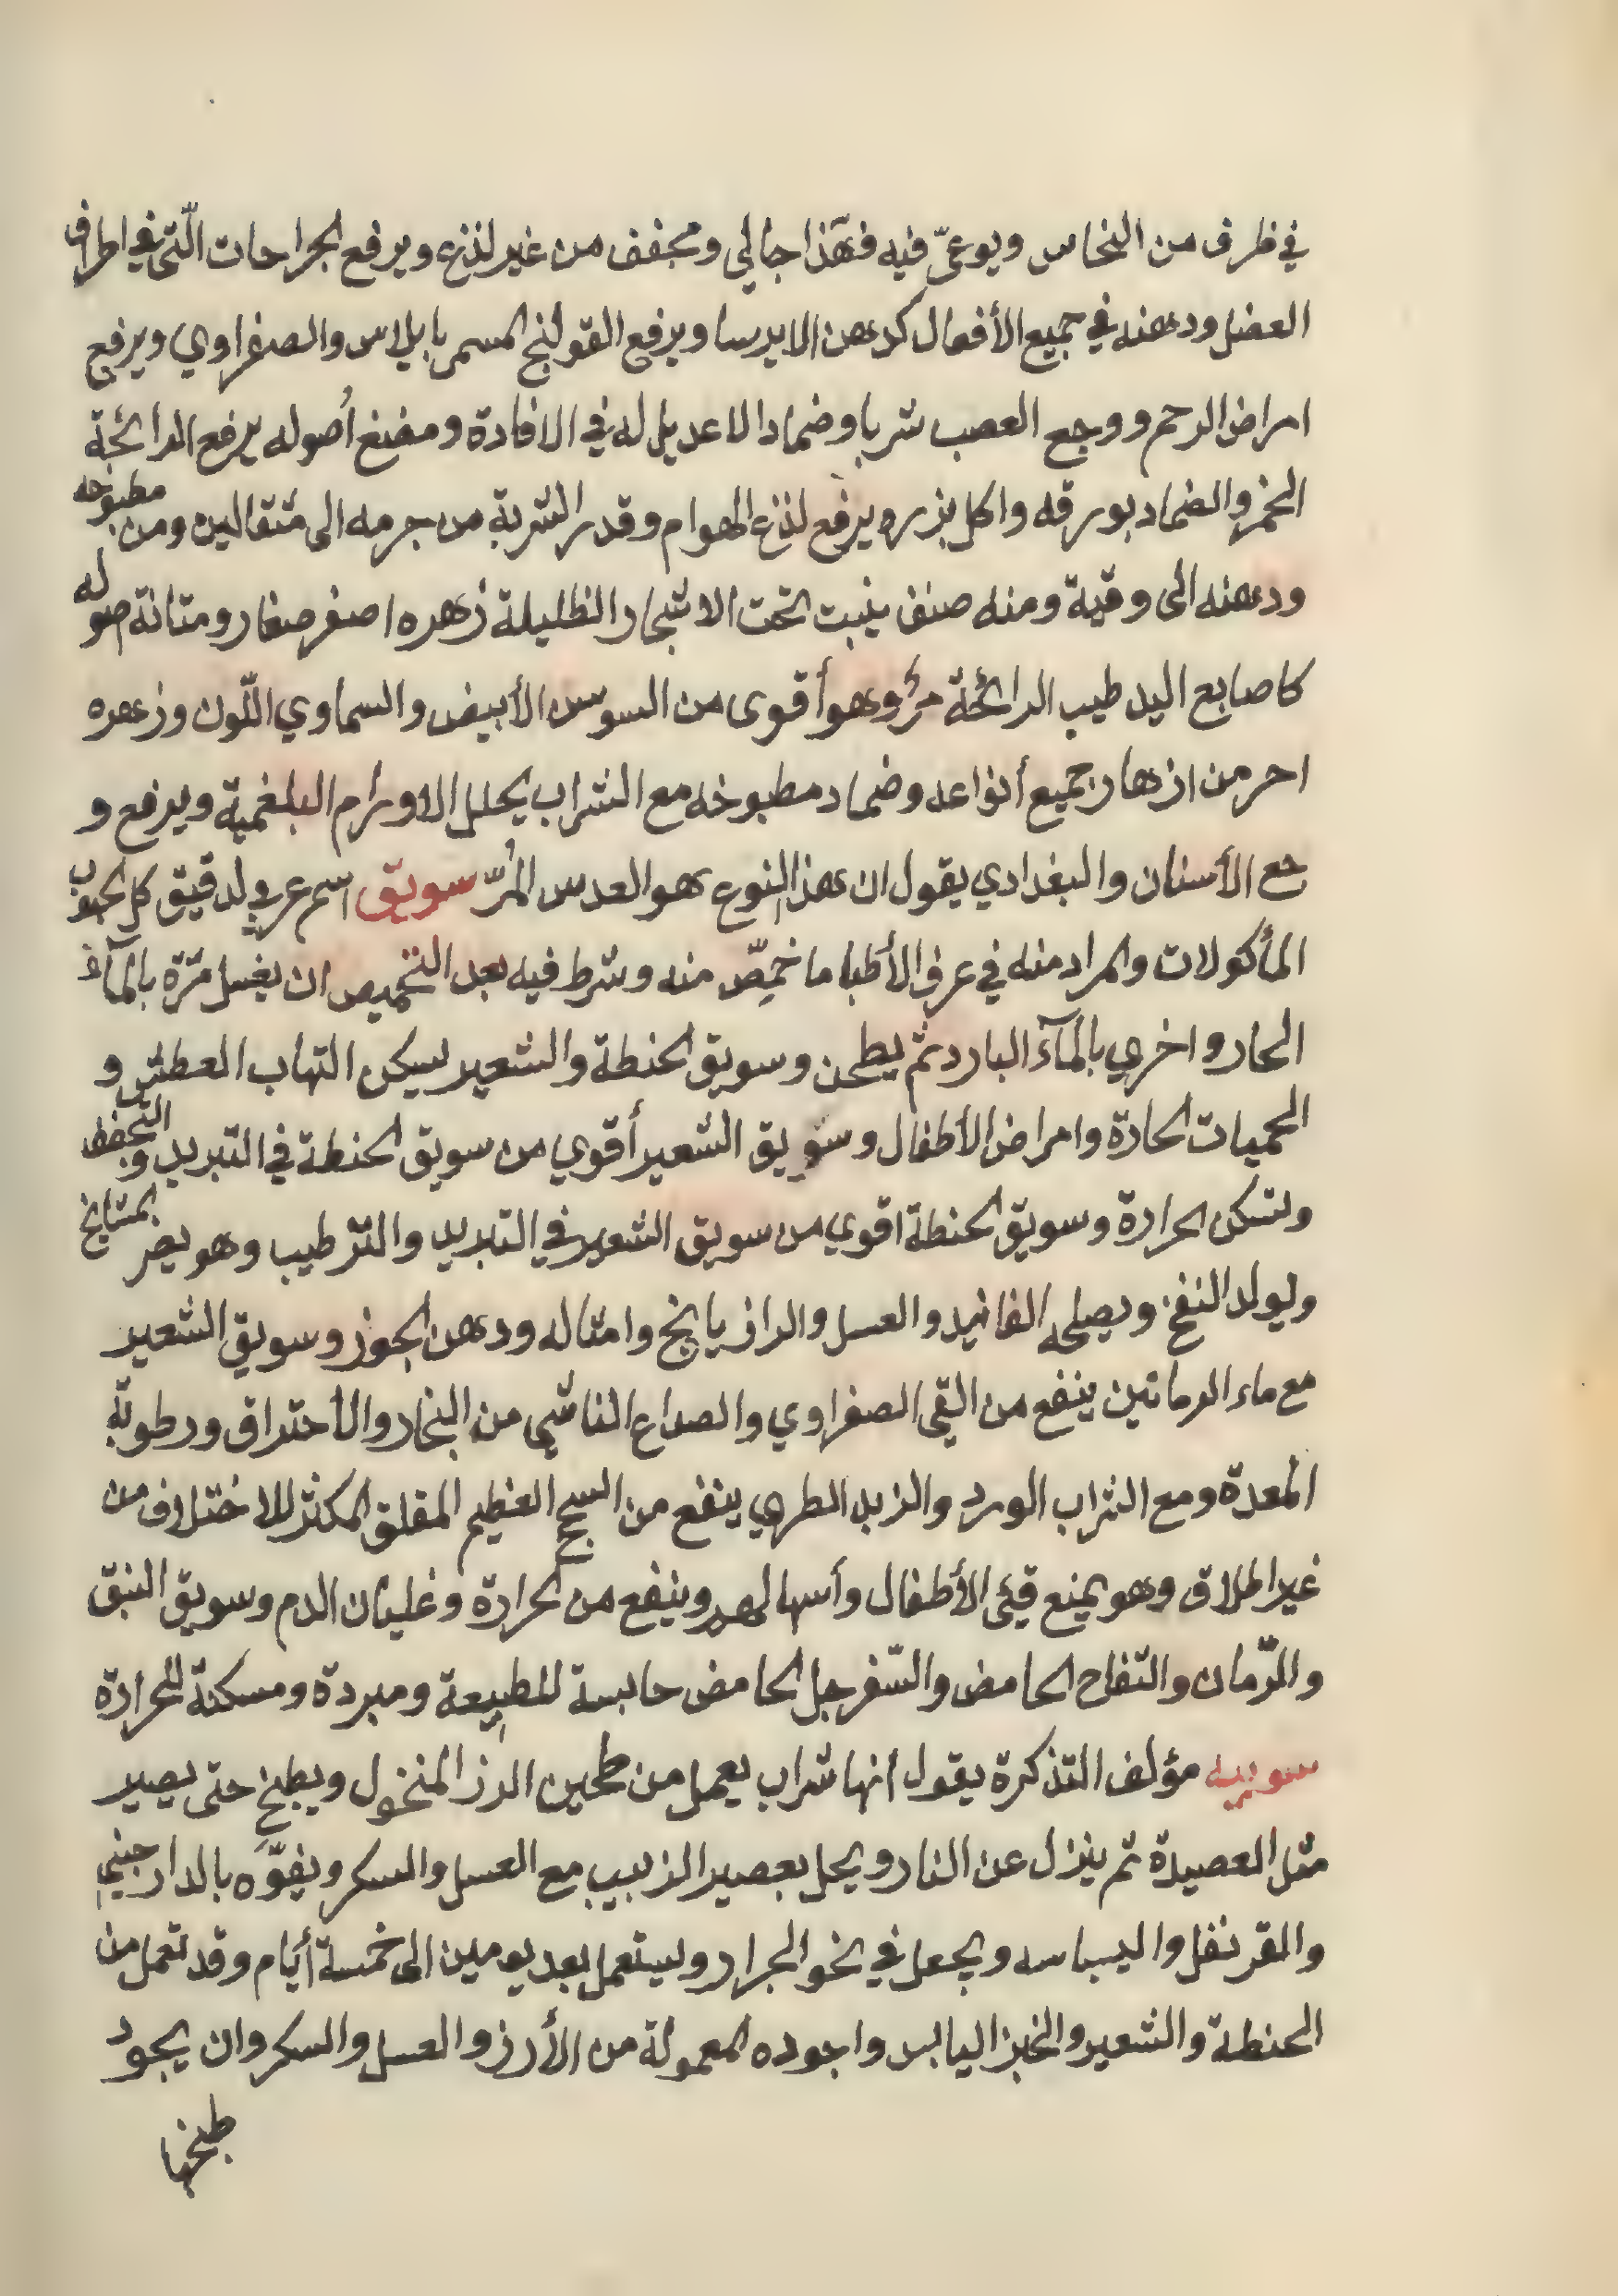 في ظرف من النحاس ويوعىّ فيه فهذا جالي ومجفف من غير لذع ويرفع الجراحات الّتي في اطراف
العضل ودهنه في جميع الأفعال كدهن الايرسا ويرفع القولنج المسمى بايلاس والصفراوي ويرفع
امراض الرحم ووجع العصب شربا وضمادا لا عديل له في الافادة ومضغ أصوله يرفع الرائحة
الخمر والضماد بورقه واكل بزره يرفع لذع الهوام وقدر الشربة من جرمه الى مثقالين ومن مطبوخه
ودهنه الى وقية ومنه صنف ينبت تحت الاشجار الظليلة زهره اصفر صغار ومتانة اصوله
كاصابع اليد طيب الرائحة مرّ وهو أقوى من السوسن الأبيض والسماوي اللّون وزهره
احر من ازهار جميع أنواعه وضماد مطبوخه مع الشراب يحلل الاورام البلغمية ويرفع و
جع الأسنان والبغدادي يقول ان هذا النوع هو العدس المُرّ سويق اسم عربي لدقيق كل الحبوب
المأكولات والمراد منه في عرف الأطبا ما خمِصّ منه وشرط فيه بعد التخميص ان يغسل مّرة بالمآء
الحار واخري بالمآء البارد ثم يطحن وسويق الحنطة والشعير يسكن التهاب العطش و
الحميات الحادة وامراض الأطفال وسويق الشعير أقوي من سويق الحنطة في التبريد والتجفف
وتسكن الحرارة وسويق الحنطة اقوي من سويق الشعير في التبريد والترطيب وهو يضر بمشايخ
ويولد النفخ ويصلحه الفانيد والعسل والرازيانج وامثاله ودهن الجوز وسويق الشعير
مع ماء الرمانين ينفع من القي الصفراوي والصداع الناشي من البخار والاحتراق ورطوبة
المعدة ومع الشراب الورد والزبد الطري ينفع من السحج العظيم المقلق المكثر للاختلاف من
غير الملاق وهو يمنع قيئ الأطفال وأسهالهم وينفع من الحرارة وغليان الدم وسويق النبق
والرّمان والتفاح الحامض والسّفرجل الحامض حابسة للطبيعة ومبردة ومسكنة للحرارة
سوبيه مؤلف التذكرة يقول انها شراب يعمل من طحين الرز المنخول ويطبخ حتى يصير
مثل العصيدة ثم ينزل عن النار ويحل بعصير الزبيب مع العسل والسكر ويفوّه بالدارجيني
والقرنفل والبسباسه ويجعل في نحو الجرار ويستعمل بعد يومين الى خمسة أيام وقد تعمل من
الحنطة والشعير والخبز اليابس واجوده المعمولة من الأرز والعسل والسكر وان يجود
طبخها